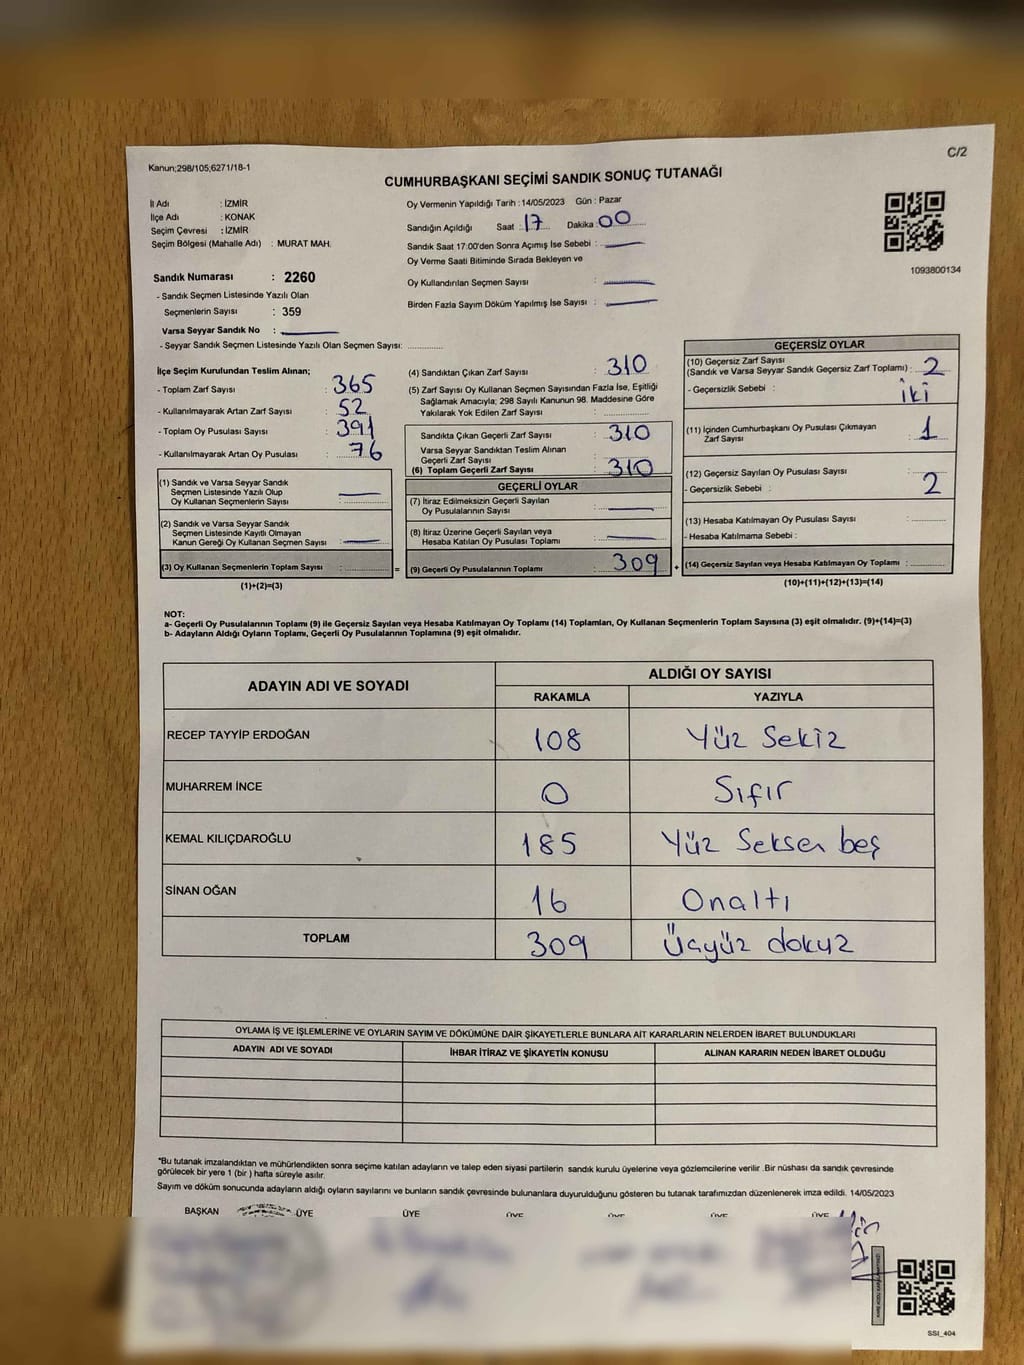 Kanun;298/105;6271/18-1
C/2
CUMHURBAŞKANI SEÇİMİ SANDIK SONUÇ TUTANAĞI
İl Adı : İZMİR
İlçe Adı : KONAK
Seçim Çevresi : İZMİR
Seçim Bölgesi (Mahalle Adı) : MURAT MAH.
Sandık Numarası : 2260
- Sandık Seçmen Listesinde Yazılı Olan
Seçmenlerin Sayısı : 359
Varsa Seyyar Sandık No :
- Seyyar Sandık Seçmen Listesinde Yazılı Olan Seçmen Sayısı:
Oy Vermenin Yapıldığı Tarih : 14/05/2023 Gün : Pazar
Sandığın Açıldığı Saat : 17 Dakika : 00
Sandık Saat 17:00'den Sonra Açımış İse Sebebi :
Oy Verme Saati Bitiminde Sırada Bekleyen ve
Oy Kullandırılan Seçmen Sayısı :
Birden Fazla Sayım Döküm Yapılmış İse Sayısı :
1093800134
İlçe Seçim Kurulundan Teslim Alınan;
- Toplam Zarf Sayısı : 365
- Kullanılmayarak Artan Zarf Sayısı : 52
- Toplam Oy Pusulası Sayısı : 391
- Kullanılmayarak Artan Oy Pusulası : 76
(1) Sandık ve Varsa Seyyar Sandık
Seçmen Listesinde Yazılı Olup
Oy Kullanan Seçmenlerin Sayısı :
(2) Sandık ve Varsa Seyyar Sandık
Seçmen Listesinde Kayıtlı Olmayan
Kanun Gereği Oy Kullanan Seçmen Sayısı :
(3) Oy Kullanan Seçmenlerin Toplam Sayısı :
(1)+(2)=(3)
(4) Sandıktan Çıkan Zarf Sayısı : 310
(5) Zarf Sayısı Oy Kullanan Seçmen Sayısından Fazla İse, Eşitliği
Sağlamak Amacıyla; 298 Sayılı Kanunun 98. Maddesine Göre
Yakılarak Yok Edilen Zarf Sayısı :
Sandıkta Çıkan Geçerli Zarf Sayısı : 310
Varsa Seyyar Sandıktan Teslim Alınan
Geçerli Zarf Sayısı :
(6) Toplam Geçerli Zarf Sayısı : 310
GEÇERLİ OYLAR
(7) İtiraz Edilmeksizin Geçerli Sayılan
Oy Pusulalarının Sayısı :
(8) İtiraz Üzerine Geçerli Sayılan veya
Hesaba Katılan Oy Pusulası Toplamı :
= (9) Geçerli Oy Pusulalarının Toplamı : 309 +
GEÇERSİZ OYLAR
(10) Geçersiz Zarf Sayısı
(Sandık ve Varsa Seyyar Sandık Geçersiz Zarf Toplamı) : 2
- Geçersizlik Sebebi : iki
(11) İçinden Cumhurbaşkanı Oy Pusulası Çıkmayan
Zarf Sayısı : 1
(12) Geçersiz Sayılan Oy Pusulası Sayısı :
- Geçersizlik Sebebi : 2
(13) Hesaba Katılmayan Oy Pusulası Sayısı :
- Hesaba Katılmama Sebebi :
(14) Geçersiz Sayılan veya Hesaba Katılmayan Oy Toplamı :
(10)+(11)+(12)+(13)=(14)
NOT:
a- Geçerli Oy Pusulalarının Toplamı (9) ile Geçersiz Sayılan veya Hesaba Katılmayan Oy Toplamı (14) Toplamları, Oy Kullanan Seçmenlerin Toplam Sayısına (3) eşit olmalıdır. (9)+(14)=(3)
b- Adayların Aldığı Oyların Toplamı, Geçerli Oy Pusulalarının Toplamına (9) eşit olmalıdır.
ADAYIN ADI VE SOYADI ALDIĞI OY SAYISI
RAKAMLA YAZIYLA
RECEP TAYYİP ERDOĞAN 108 Yüz Sekiz
MUHARREM İNCE 0 Sıfır
KEMAL KILIÇDAROĞLU 185 Yüz Seksen beş
SİNAN OĞAN 16 Onaltı
TOPLAM 309 Üçyüz dokuz
OYLAMA İŞ VE İŞLEMLERİNE VE OYLARIN SAYIM VE DÖKÜMÜNE DAİR ŞİKAYETLERLE BUNLARA AİT KARARLARIN NELERDEN İBARET BULUNDUKLARI
ADAYIN ADI VE SOYADI İHBAR İTİRAZ VE ŞİKAYETİN KONUSU ALINAN KARARIN NEDEN İBARET OLDUĞU
*Bu tutanak imzalandıktan ve mühürlendikten sonra seçime katılan adayların ve talep eden siyasi partilerin sandık kurulu üyelerine veya gözlemcilerine verilir .Bir nüshası da sandık çevresinde
görülecek bir yere 1 (bir ) hafta süreyle asılır.
Sayım ve döküm sonucunda adayların aldığı oyların sayılarını ve bunların sandık çevresinde bulunanlara duyurulduğunu gösteren bu tutanak tarafımızdan düzenlenerek imza edildi. 14/05/2023
BAŞKAN ÜYE ÜYE ÜYE ÜYE ÜYE ÜYE
SSI_404